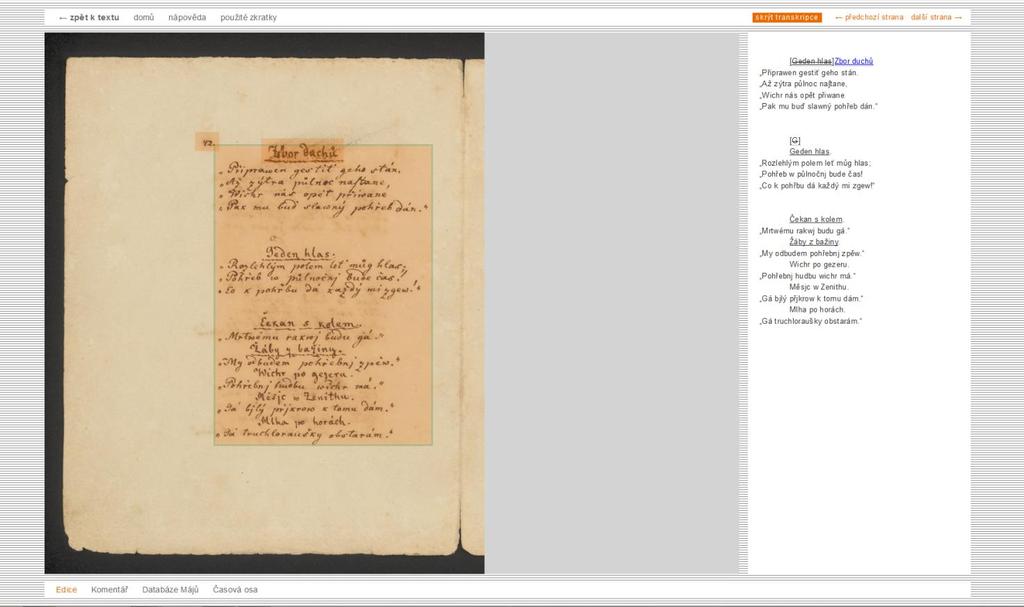 ← zpět k textu domů nápověda použité zkratky skrýt transkripce ← předchozí strana další strana →
42.
Zbor duchů
„Připrawen gestiť geho stán.
„Až zýtra půlnoc naſtane,
„Wichr nás opět přiwane
„Pak mu buď slawný pohřeb dán.“
Geden hlas.
„Rozlehlým polem leť můg hlas;
„Pohřeb w půlnočnj bude čas!
„Co k pohřbu dá každý mi zgew!“
Čekan s kolem.
„Mrtwému rakwj budu gá.“
Žáby z bažiny.
„My odbudem pohřebnj zpěw.“
Wichr po gezeru.
„Pohřebnj hudbu wichr má.“
Měsjc w Zenithu.
„Gá bjlý přjkrow k tomu dám.“
Mlha po horách.
„Gá truchloraušky obstarám.“
[Geden hlas]Zbor duchů
„Připrawen gestiť geho stán.
„Až zýtra půlnoc naſtane,
„Wichr nás opět přiwane
„Pak mu buď slawný pohřeb dán.“
[G]
Geden hlas.
„Rozlehlým polem leť můg hlas;
„Pohřeb w půlnočnj bude čas!
„Co k pohřbu dá každý mi zgew!“
Čekan s kolem.
„Mrtwému rakwj budu gá.“
Žáby z bažiny.
„My odbudem pohřebnj zpěw.“
Wichr po gezeru.
„Pohřebnj hudbu wichr má.“
Měsjc w Zenithu.
„Gá bjlý přjkrow k tomu dám.“
Mlha po horách.
„Gá truchloraušky obstarám.“
Edice Komentář Databáze Májů Časová osa